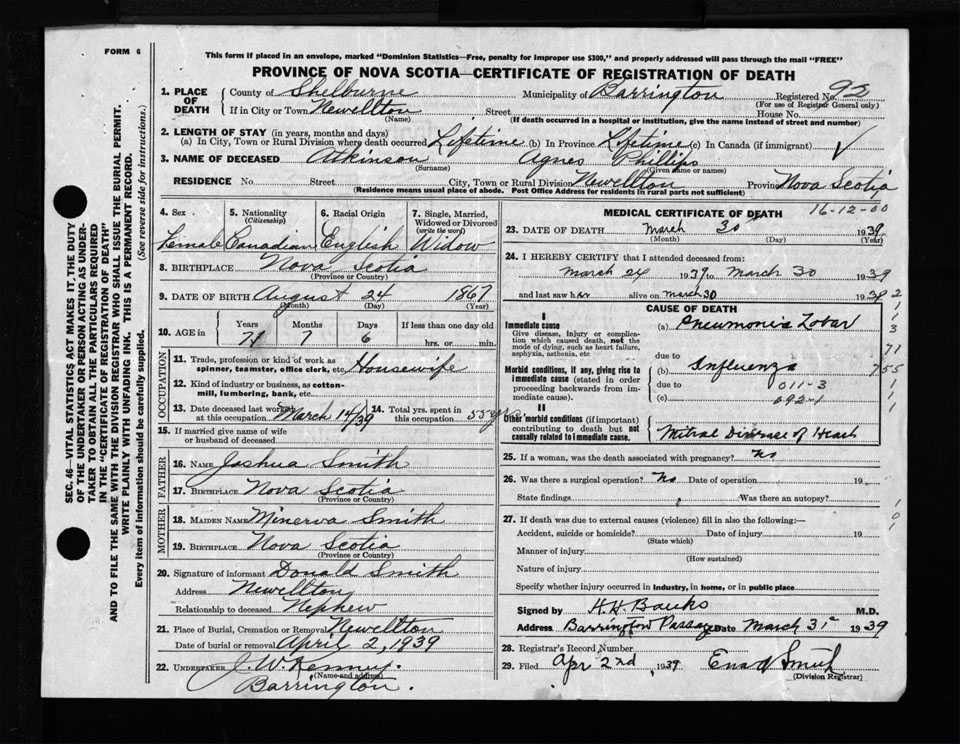 FORM 6
This form if placed in an envelope, marked "Dominion Statistics—Free, penalty for improper use $300," and properly addressed will pass through the mail "FREE"
PROVINCE OF NOVA SCOTIA—CERTIFICATE OF REGISTRATION OF DEATH
SEC. 46—VITAL STATISTICS ACT MAKES IT THE DUTY
OF THE UNDERTAKER OR PERSON ACTING AS UNDER-
TAKER TO OBTAIN ALL THE PARTICULARS REQUIRED
IN THE "CERTIFICATE OF REGISTRATION OF DEATH"
AND TO FILE THE SAME WITH THE DIVISION REGISTRAR WHO SHALL ISSUE THE BURIAL PERMIT.
WRITE PLAINLY WITH UNFADING INK. THIS IS A PERMANENT RECORD.
Every item of information should be carefully supplied. (See reverse side for instructions.)
1. PLACE OF DEATH
County of Shelburne Municipality of Barrington Registered No. 92
(For use of Registrar General only)
If in City or Town Newellton Street House No.
(Name) (If death occurred in a hospital or institution, give the name instead of street and number)
2. LENGTH OF STAY (in years, months and days)
(a) In City, Town or Rural Division where death occurred Lifetime (b) In Province Lifetime (c) In Canada (if immigrant) ✓
3. NAME OF DECEASED Atkinson Agnes Phillips
(Surname) (Given name or names)
RESIDENCE No. Street City, Town or Rural Division Newellton Province Nova Scotia
(Residence means usual place of abode. Post Office Address for residents in rural parts not sufficient)
4. Sex 5. Nationality (Citizenship) 6. Racial Origin 7. Single, Married, Widowed or Divorced (write the word)
Female Canadian English Widow
8. BIRTHPLACE Nova Scotia
(Province or Country)
9. DATE OF BIRTH August 24 1867
(Month) (Day) (Year)
10. AGE in Years Months Days If less than one day old
71 7 6 hrs. or min.
OCCUPATION
11. Trade, profession or kind of work as
spinner, teamster, office clerk, etc. Housewife
12. Kind of industry or business, as cotton-
mill, lumbering, bank, etc.
13. Date deceased last worked at this occupation March 14/39 14. Total yrs. spent in this occupation 55 yrs.
15. If married give name of wife
or husband of deceased
FATHER
16. NAME Joshua Smith
17. BIRTHPLACE Nova Scotia
(Province or Country)
MOTHER
18. MAIDEN NAME Minerva Smith
19. BIRTHPLACE Nova Scotia
(Province or Country)
20. Signature of informant Donald Smith
Address Newellton
Relationship to deceased Nephew
21. Place of Burial, Cremation or Removal Newellton
Date of burial or removal April 2, 1939
22. UNDERTAKER J. W. Kenney.
(Name and address)
Barrington.
MEDICAL CERTIFICATE OF DEATH 16-12-00
23. DATE OF DEATH March 30 1939
(Month) (Day) (Year)
24. I HEREBY CERTIFY that I attended deceased from:
March 24 1939 to March 30 1939
and last saw her alive on March 30 1939
CAUSE OF DEATH
I
Immediate cause (a) Pneumonia Lobar
Give disease, injury or complica-
tion which caused death, not the
mode of dying, such as heart failure,
asphyxia, asthenia, etc
due to
Morbid conditions, if any, giving rise to
immediate cause (stated in order
proceeding backwards from im-
mediate cause).
(b) Influenza
due to 011-3
(c) 092-1
II
Other morbid conditions (if important)
contributing to death but not
causally related to immediate cause.
Mitral Disease of Heart
25. If a woman, was the death associated with pregnancy? No
26. Was there a surgical operation? No Date of operation 19
State findings Was there an autopsy?
27. If death was due to external causes (violence) fill in also the following:—
Accident, suicide or homicide? Date of injury 19
(State which)
Manner of injury
(How sustained)
Nature of injury
Specify whether injury occurred in industry, in home, or in public place
Signed by H H Banks M.D.
Address Barrington Passage Date March 31st 1939
28. Registrar's Record Number
29. Filed Apr 2nd 1939 Smith
(Division Registrar)